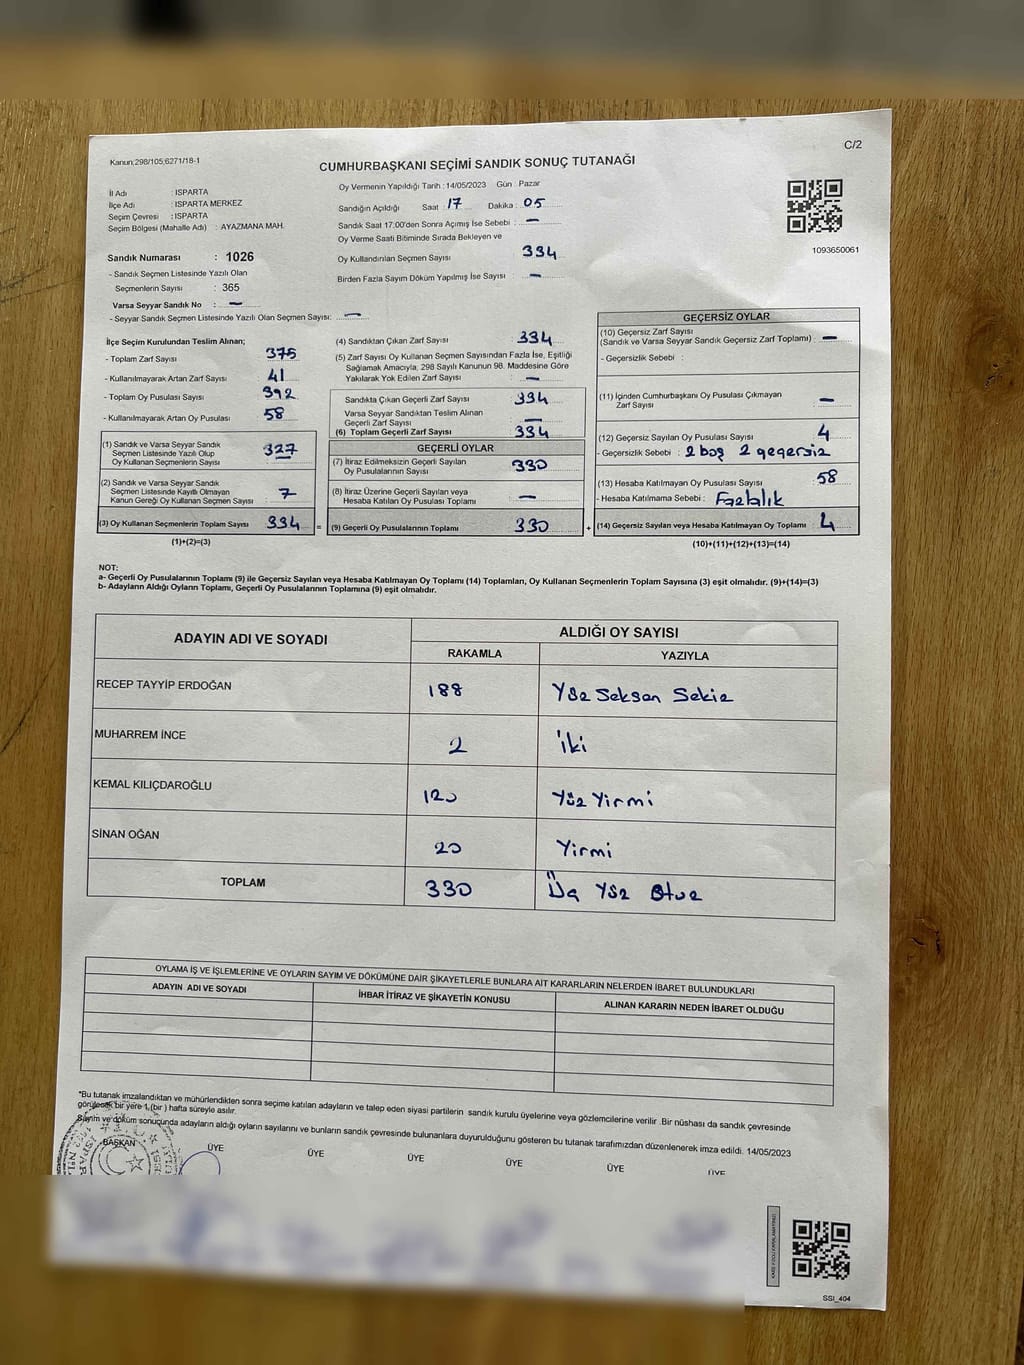 Kanun;298/105;6271/18-1
C/2
CUMHURBAŞKANI SEÇİMİ SANDIK SONUÇ TUTANAĞI
İl Adı : ISPARTA
İlçe Adı : ISPARTA MERKEZ
Seçim Çevresi : ISPARTA
Seçim Bölgesi (Mahalle Adı) : AYAZMANA MAH.
Sandık Numarası : 1026
- Sandık Seçmen Listesinde Yazılı Olan
Seçmenlerin Sayısı : 365
Varsa Seyyar Sandık No : —
- Seyyar Sandık Seçmen Listesinde Yazılı Olan Seçmen Sayısı: —
Oy Vermenin Yapıldığı Tarih : 14/05/2023 Gün : Pazar
Sandığın Açıldığı Saat : 17 Dakika : 05
Sandık Saat 17:00'den Sonra Açımış İse Sebebi : —
Oy Verme Saati Bitiminde Sırada Bekleyen ve
Oy Kullandırılan Seçmen Sayısı 334
Birden Fazla Sayım Döküm Yapılmış İse Sayısı : —
1093650061
İlçe Seçim Kurulundan Teslim Alınan;
- Toplam Zarf Sayısı 375
- Kullanılmayarak Artan Zarf Sayısı 41
- Toplam Oy Pusulası Sayısı 392
- Kullanılmayarak Artan Oy Pusulası 58
(1) Sandık ve Varsa Seyyar Sandık
Seçmen Listesinde Yazılı Olup
Oy Kullanan Seçmenlerin Sayısı : 327
(2) Sandık ve Varsa Seyyar Sandık
Seçmen Listesinde Kayıtlı Olmayan
Kanun Gereği Oy Kullanan Seçmen Sayısı : 7
(3) Oy Kullanan Seçmenlerin Toplam Sayısı 334 =
(1)+(2)=(3)
(4) Sandıktan Çıkan Zarf Sayısı : 334
(5) Zarf Sayısı Oy Kullanan Seçmen Sayısından Fazla İse, Eşitliği
Sağlamak Amacıyla, 298 Sayılı Kanunun 98. Maddesine Göre
Yakılarak Yok Edilen Zarf Sayısı : —
Sandıkta Çıkan Geçerli Zarf Sayısı : 334
Varsa Seyyar Sandıktan Teslim Alınan
Geçerli Zarf Sayısı : —
(6) Toplam Geçerli Zarf Sayısı : 334
GEÇERLİ OYLAR
(7) İtiraz Edilmeksizin Geçerli Sayılan
Oy Pusulalarının Sayısı : 330
(8) İtiraz Üzerine Geçerli Sayılan veya
Hesaba Katılan Oy Pusulası Toplamı : —
(9) Geçerli Oy Pusulalarının Toplamı : 330 +
GEÇERSİZ OYLAR
(10) Geçersiz Zarf Sayısı
(Sandık ve Varsa Seyyar Sandık Geçersiz Zarf Toplamı) : —
- Geçersizlik Sebebi :
(11) İçinden Cumhurbaşkanı Oy Pusulası Çıkmayan
Zarf Sayısı : —
(12) Geçersiz Sayılan Oy Pusulası Sayısı : 4
- Geçersizlik Sebebi : 2 boş 2 geçersiz
(13) Hesaba Katılmayan Oy Pusulası Sayısı : 58
- Hesaba Katılmama Sebebi : Fazlalık
(14) Geçersiz Sayılan veya Hesaba Katılmayan Oy Toplamı : 4
(10)+(11)+(12)+(13)=(14)
NOT:
a- Geçerli Oy Pusulalarının Toplamı (9) ile Geçersiz Sayılan veya Hesaba Katılmayan Oy Toplamı (14) Toplamları, Oy Kullanan Seçmenlerin Toplam Sayısına (3) eşit olmalıdır. (9)+(14)=(3)
b- Adayların Aldığı Oyların Toplamı, Geçerli Oy Pusulalarının Toplamına (9) eşit olmalıdır.
ADAYIN ADI VE SOYADI
ALDIĞI OY SAYISI
RAKAMLA YAZIYLA
RECEP TAYYİP ERDOĞAN 188 Yüz Seksen Sekiz
MUHARREM İNCE 2 İki
KEMAL KILIÇDAROĞLU 120 Yüz Yirmi
SİNAN OĞAN 20 Yirmi
TOPLAM 330 Üç Yüz Otuz
OYLAMA İŞ VE İŞLEMLERİNE VE OYLARIN SAYIM VE DÖKÜMÜNE DAİR ŞİKAYETLERLE BUNLARA AİT KARARLARIN NELERDEN İBARET BULUNDUKLARI
ADAYIN ADI VE SOYADI
İHBAR İTİRAZ VE ŞİKAYETİN KONUSU
ALINAN KARARIN NEDEN İBARET OLDUĞU
*Bu tutanak imzalandıktan ve mühürlendikten sonra seçime katılan adayların ve talep eden siyasi partilerin sandık kurulu üyelerine veya gözlemcilerine verilir .Bir nüshası da sandık çevresinde
görülecek bir yere 1 (bir ) hafta süreyle asılır.
Sayım ve döküm sonucunda adayların aldığı oyların sayılarını ve bunların sandık çevresinde bulunanlara duyurulduğunu gösteren bu tutanak tarafımızdan düzenlenerek imza edildi. 14/05/2023
BAŞKAN ÜYE ÜYE ÜYE ÜYE ÜYE ÜYE
SSI_404